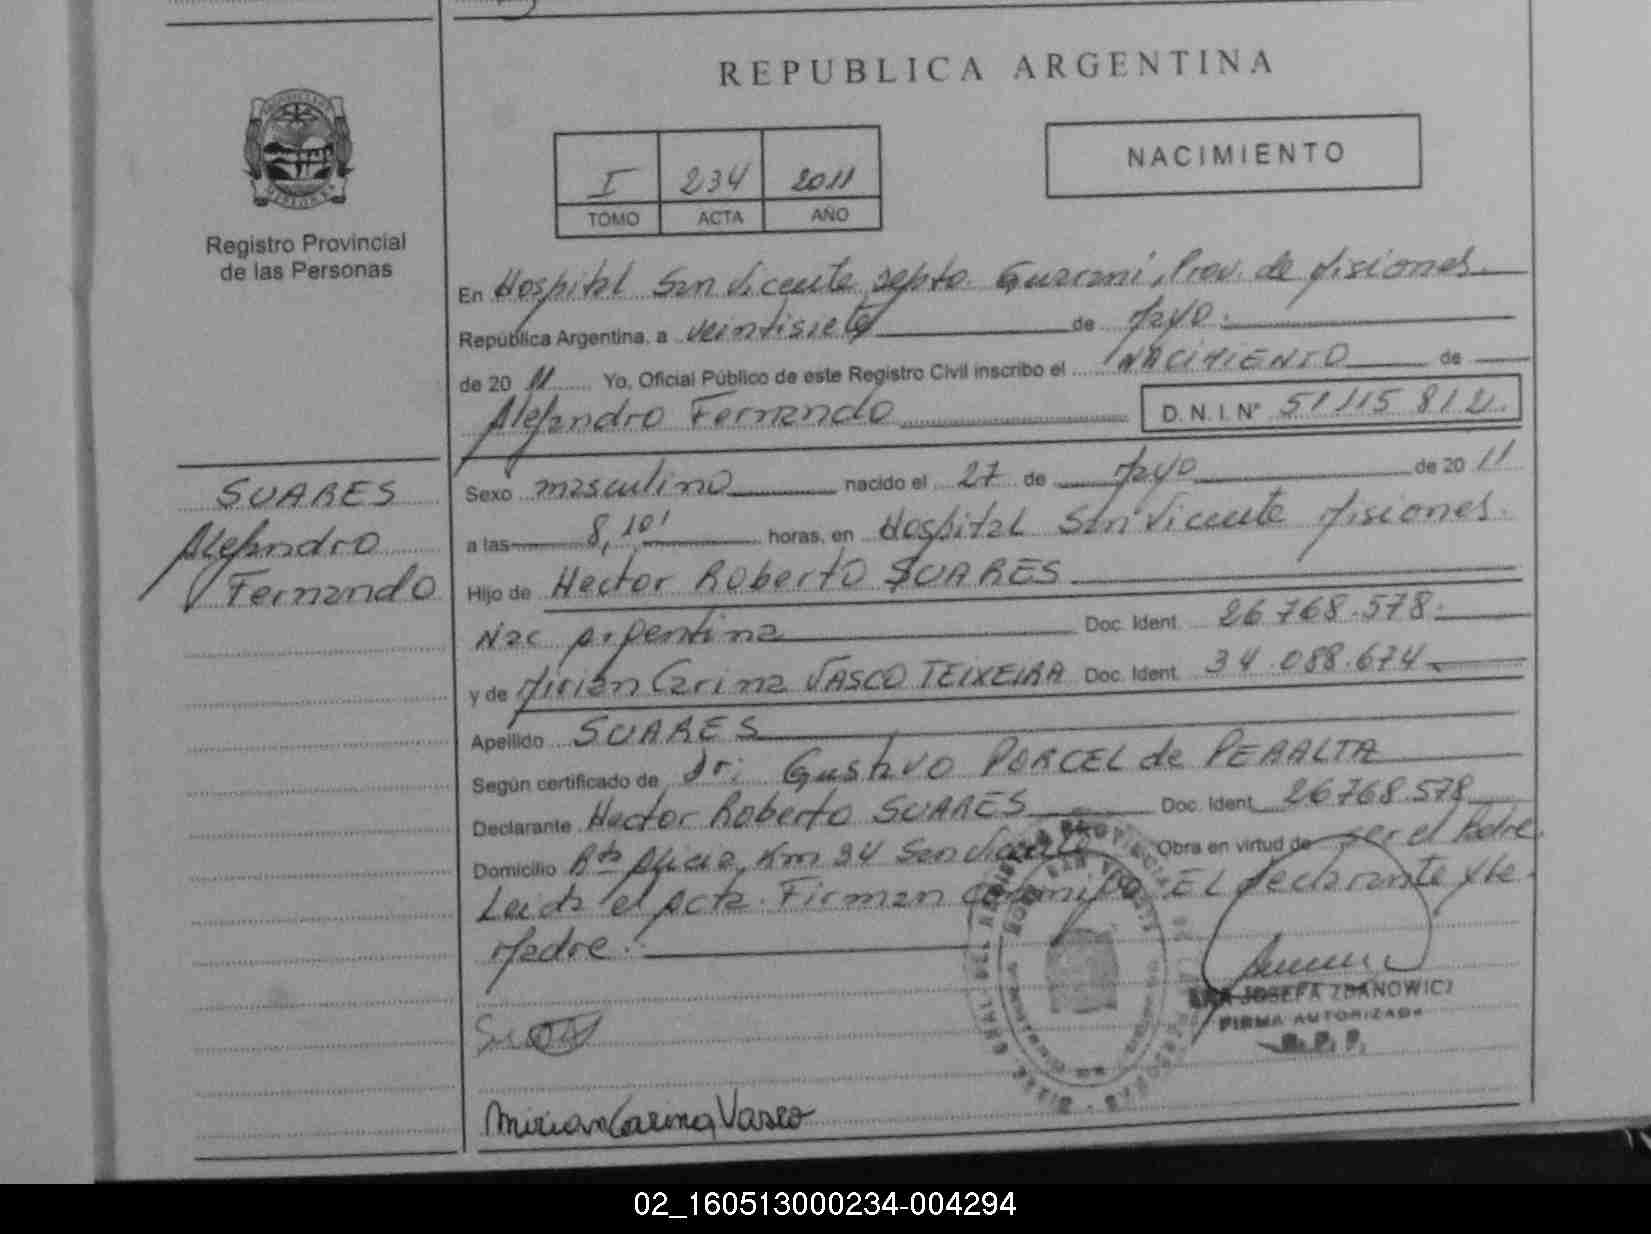 REPUBLICA ARGENTINA
I 234 2011
TOMO ACTA AÑO
NACIMIENTO
Registro Provincial
de las Personas
En Hospital San Vicente Depto. Guarani, Prov. de Misiones
República Argentina, a veintisiete de Mayo
de 20 11 Yo, Oficial Público de este Registro Civil inscribo el NACIMIENTO de
Alejandro Fernando D.N.I. Nº
SUARES
Alejandro
Fernando
Sexo masculino nacido el 27 de Mayo de 20 11
a las 8,10' horas, en Hospital San Vicente Misiones.
Hijo de Hector Roberto SUARES
Nac Argentina Doc. Ident. 26.768.578.
y de Mirian Carina VASCO TEIXEIRA Doc. Ident. 34.088.674
Apellido SUARES
Según certificado de Dr: Gustavo PORCEL de PERALTA
Declarante Hector Roberto SUARES Doc. Ident. 26.768.578
Domicilio Km 34 San Vicente Obra en virtud de ser el Padre.
Leida el Acta. Firman conmigo EL declarante y la
Madre.
JOSEFA ZDANOWICZ
FIRMA AUTORIZADA
Mirian Carina Vasco
02_160513000234-004294